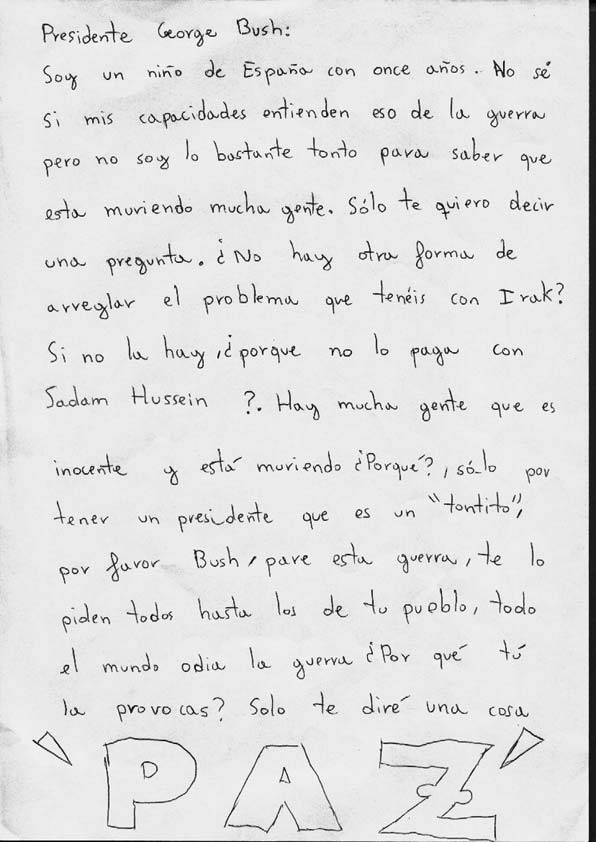 Presidente George Bush:
Soy un niño de España con once años. No sé
si mis capacidades entienden eso de la guerra
pero no soy lo bastante tonto para saber que
esta muriendo mucha gente. Sólo te quiero decir
una pregunta. ¿No hay otra forma de
arreglar el problema que tenéis con Irak?
Si no la hay, ¿porque no lo paga con
Sadam Hussein ?. Hay mucha gente que es
inocente y está muriendo ¿Porqué?, sólo por
tener un presidente que es un "tontito",
por favor Bush, pare esta guerra, te lo
piden todos hasta los de tu pueblo, todo
el mundo odia la guerra ¿Por qué tú
la provocas? Solo te diré una cosa
"PAZ"